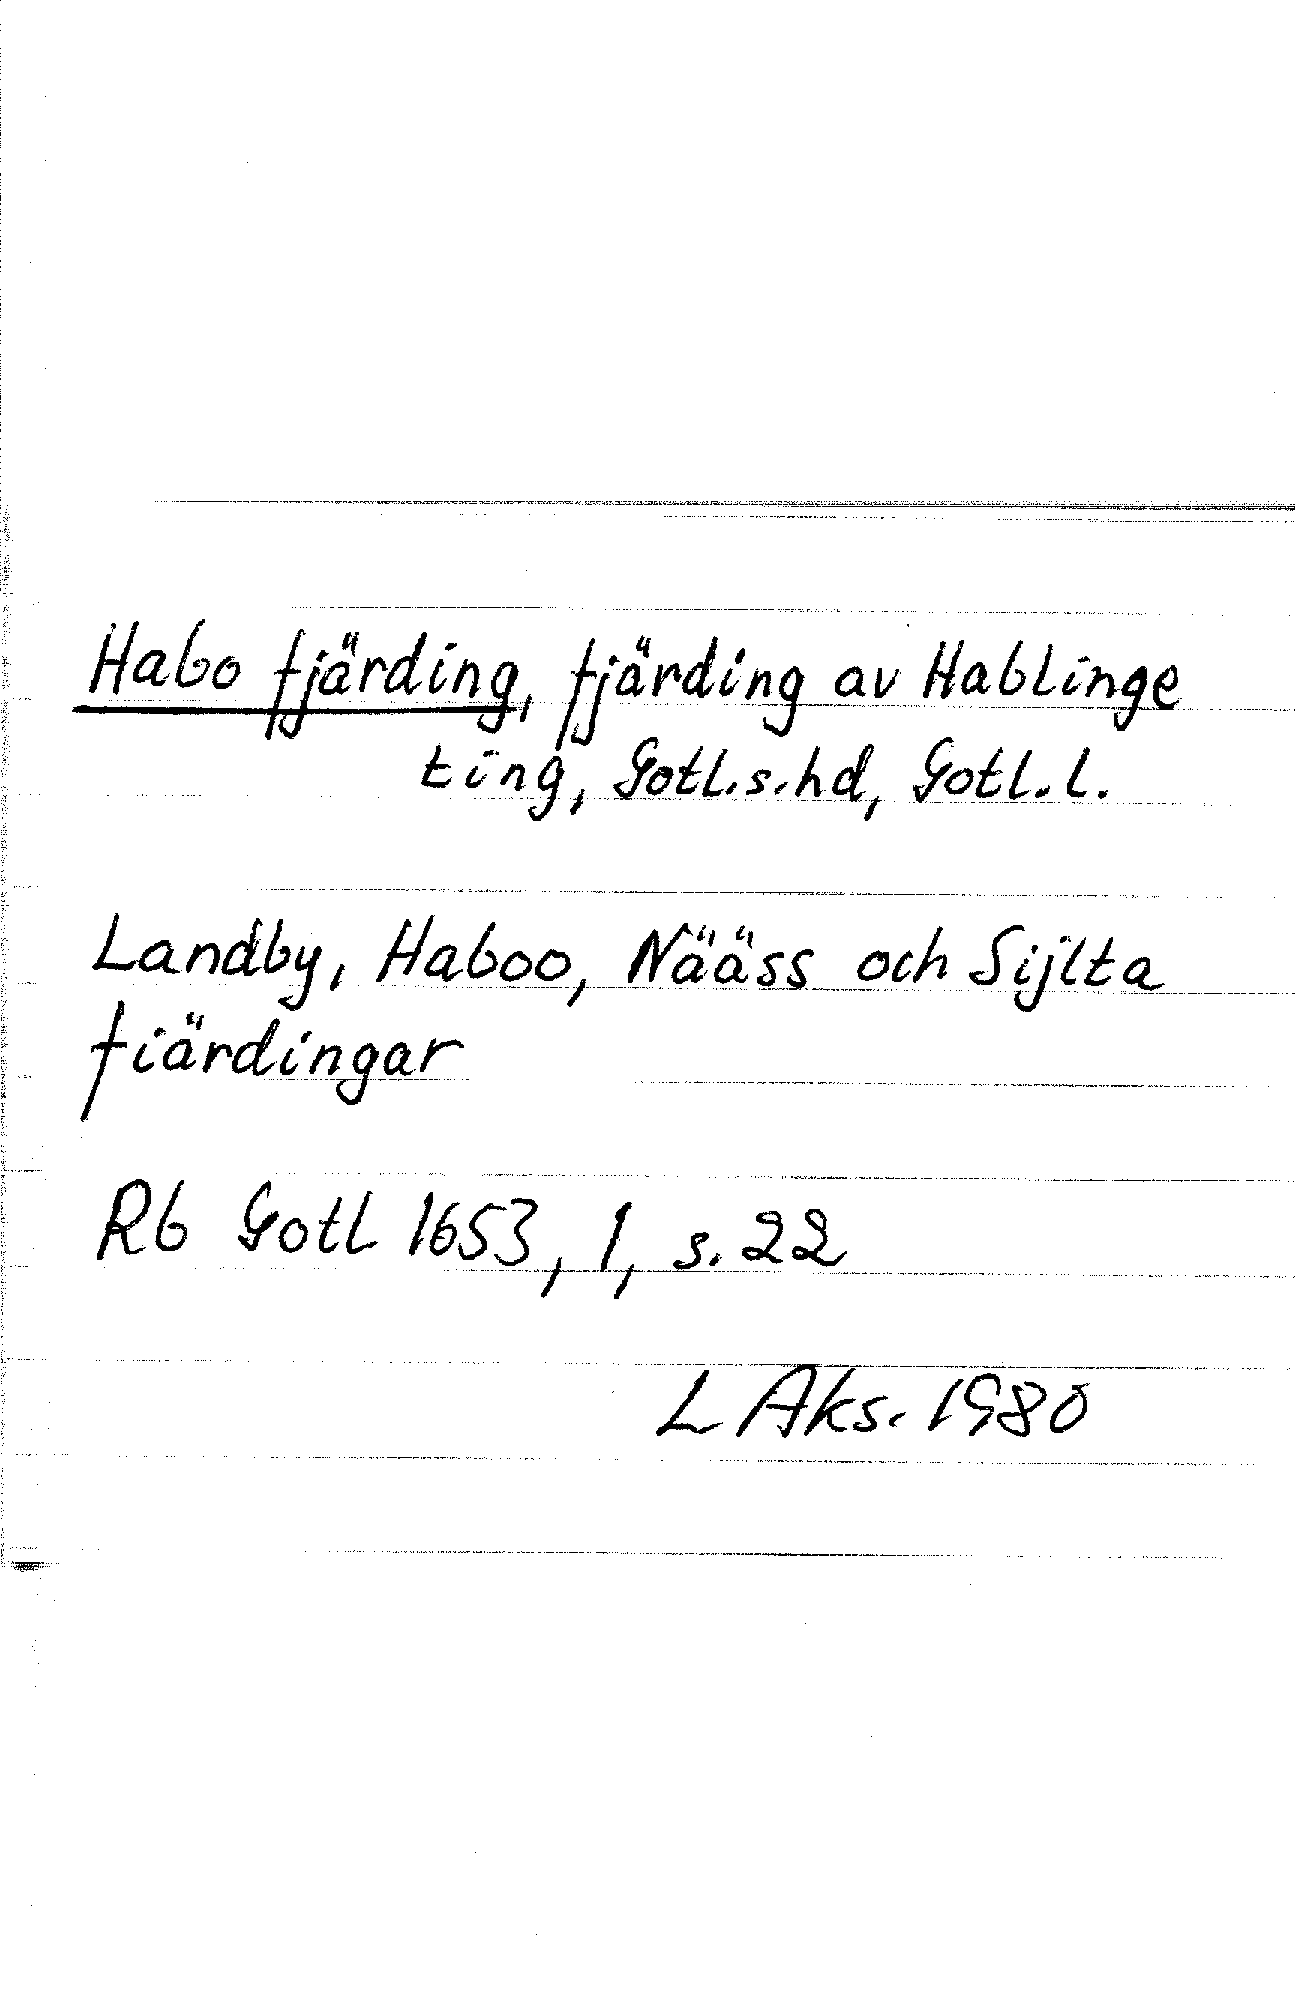 Habo fjärding, fjärding av Hablinge
ting, Gotl.s.hd, Gotl.l.
Landby, Haboo, Nääss och Sijlta
fiärdingar
Rb Gotl 1653, 1, s. 22
L Aks. 1980